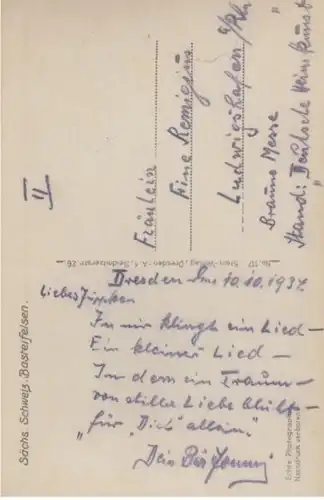 II
Fräulein
Fine Remigius
Ludwigshafen a/Rh
Braune Messe
Stand: "Deutsche Heimkunst
No. 10 Stein-Verlag, Dresden-A. 1, Seidnitzerstr. 26
Dresden den 10.10.1937.
Liebes
In mir klingt ein Lied –
Ein kleines Lied –
In dem ein Traum –
von stiller Liebe blüht –
"für "Dich" allein."
Dein
Sächs. Schweiz. Basteifelsen.
Echte Photographie
Nachdruck verboten